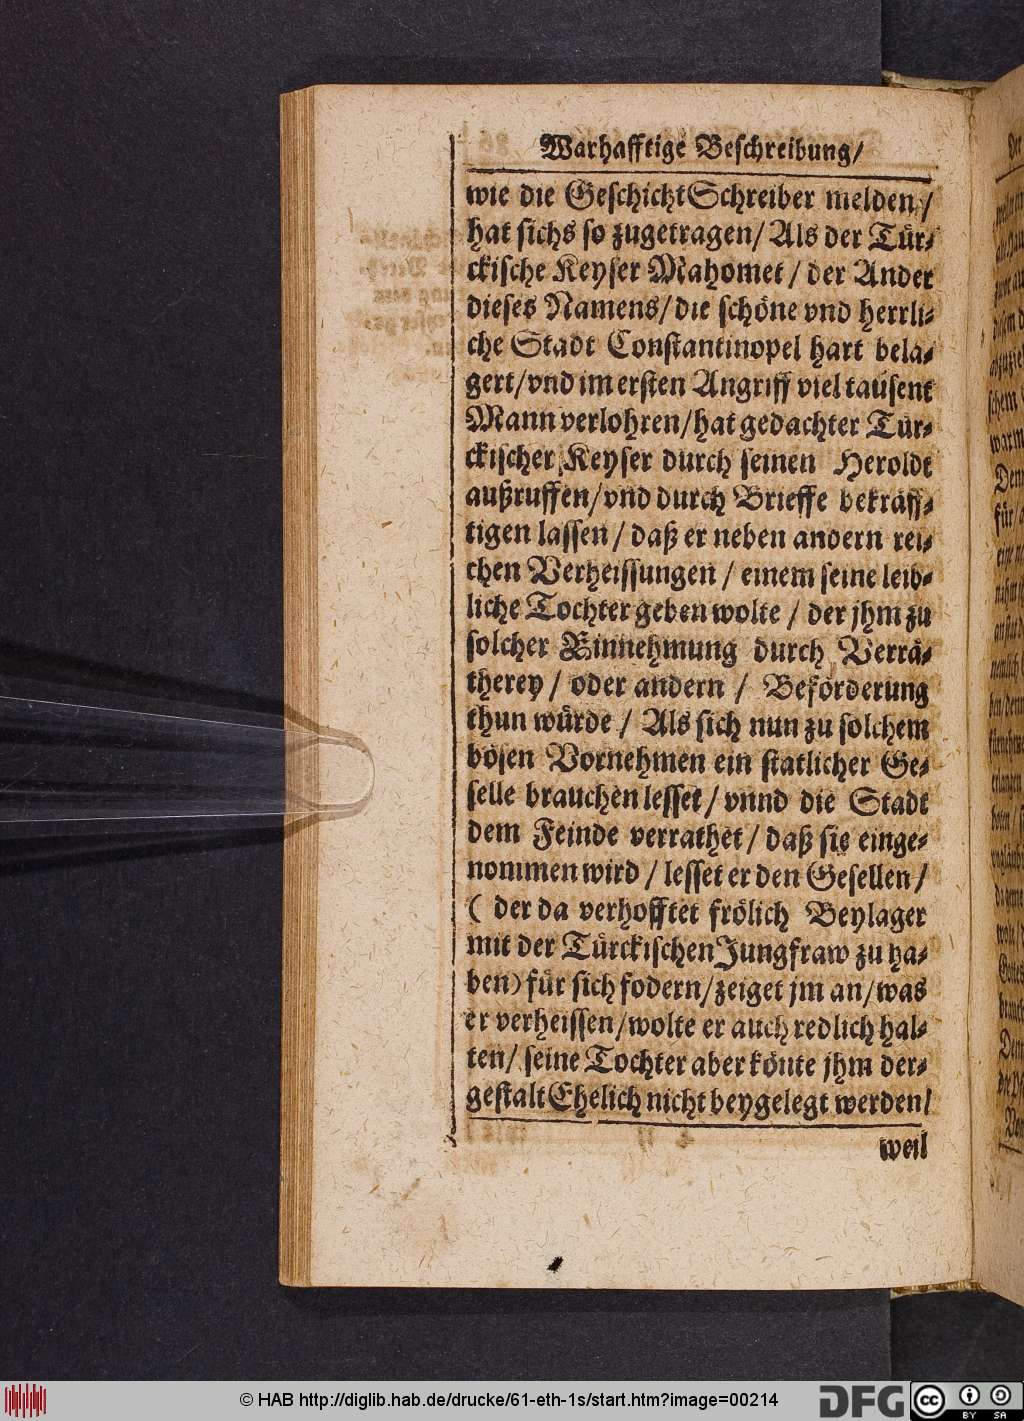 Warhafftige Beschreibung/
wie die GeschichtSchreiber melden/
hat sichs so zugetragen/ Als der Tür-
ckische Keyser Mahomet / der Ander
dieses Namens/ die schöne vnd herrli-
che Stadt Constantinopel hart bela-
gert/ vnd im ersten Angriff viel tausent
Mann verlohren/ hat gedachter Tür-
ckischer Keyser durch seinen Heroldt
außruffen/ vnd durch Brieffe bekräff-
tigen lassen / daß er neben andern rei-
chen Verheissungen / einem seine leib-
liche Tochter geben wolte / der jhm zu
solcher Einnehmung durch Verrä-
therey / oder andern / Beförderung
thun würde / Als sich nun zu solchem
bösen Vornehmen ein statlicher Ge-
selle brauchen lesset / vnnd die Stadt
dem Feinde verrathet / daß sie einge-
nommen wird / lesset er den Gesellen /
( der da verhofftet frölich Beylager
mit der Türckischen Jungfraw zu ha-
ben) für sich fodern/ zeiget jm an/ was
er verheissen/ wolte er auch redlich hal-
ten/ seine Tochter aber könte jhm der-
gestalt Ehelich nicht beygelegt werden/
weil
© HAB http://diglib.hab.de/drucke/61-eth-1s/start.htm?image=00214
DFG
cc BY SA